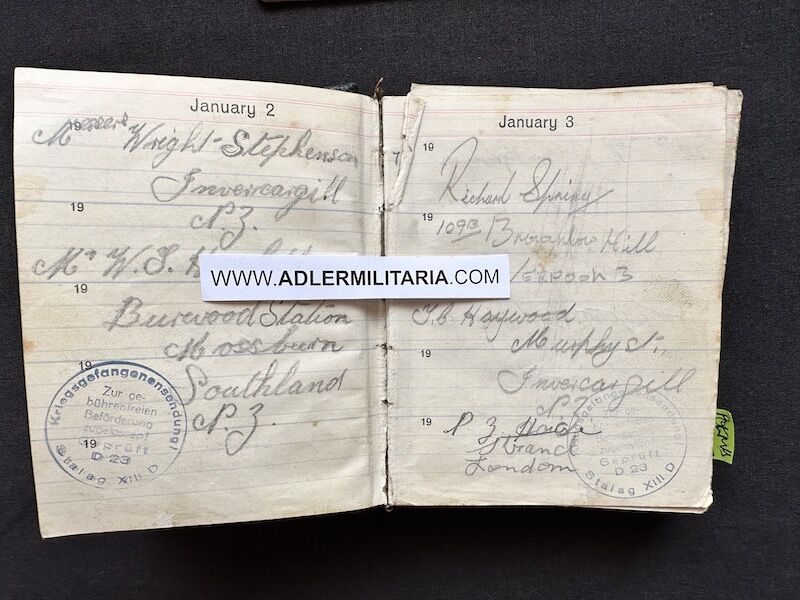 January 2
19
Messers Wright-Stephenson
Invercargill
19
N.Z.
Mr W. S.
19
Burwood Station
Mossburn
19
Southland
N.Z.
Kriegsgefangenensendung!
Zur ge-
bührenfreien
Beförderung
zugelassen!
Geprüft
D 23
Stalag XIII D
19
January 3
19
Richard Spring
19
109B Brownlow Hill
3
WWW.ADLERMILITARIA.COM
Haywood
Murphy St.
19
Invercargill
N.Z.
19
P Z
Strand
London
Geprüft
D 23
Stalag XIII D